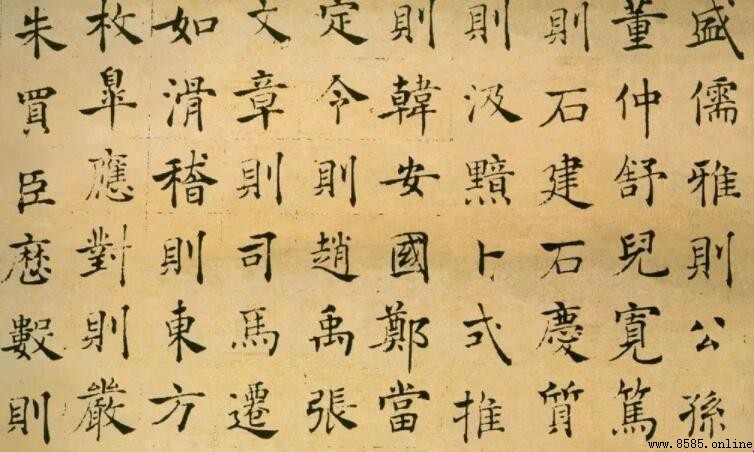 盛儒雅則公孫
董仲舒兒寬篤
則石建石慶質
則汲黯卜式推
則韓安國鄭當
定令則趙禹張
文章則司馬遷
如滑稽則東方
枚臯應對則嚴
朱買臣厯數則
www.8585.online